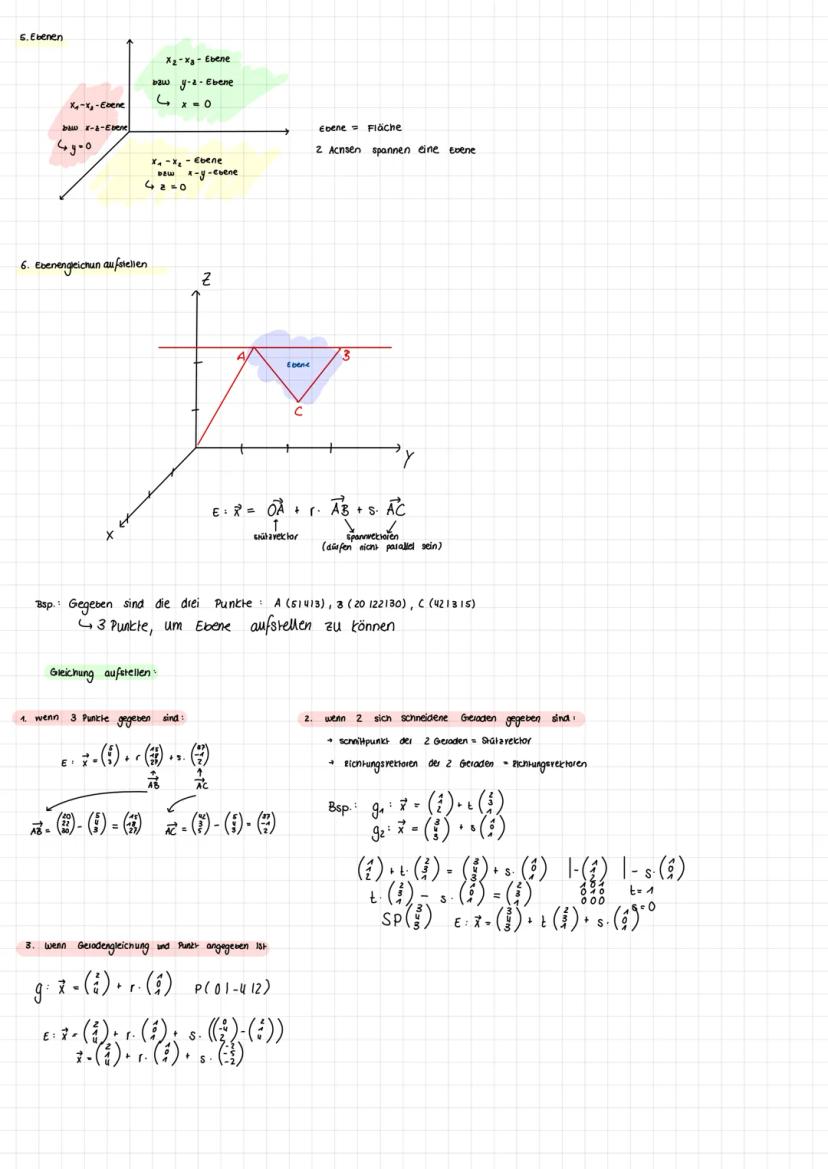 5. Ebenen
x₂-x₃-Ebene
bzw y-z-Ebene
↳ x = 0
x₁-x₃-Ebene
bzw x-z-Ebene
↳ y=0
x₁-x₂-Ebene
bzw x-y-Ebene
↳ z=0
Ebene = Fläche
2 Achsen spannen eine Ebene
6. Ebenengleichun aufstellen
Z
A
B
Ebene
C
Y
X
E: x⃗ = OA⃗ + r· AB⃗ + s· AC⃗
Stützvektor
Spannvektoren
(dürfen nicht parallel sein)
Bsp.: Gegeben sind die drei Punkte: A (5|4|3), B (20|22|30), C (42|3|5)
↳ 3 Punkte, um Ebene aufstellen zu können
Gleichung aufstellen:
1. wenn 3 Punkte gegeben sind:
E: x⃗ = (5 4 3) + r (15 18 27) + s· (37 -1 2)
AB⃗ AC⃗
AB⃗ = (20 22 30) - (5 4 3) = (15 18 27) AC⃗ = (42 3 5) - (5 4 3) = (37 -1 2)
2. wenn 2 sich schneidene Geraden gegeben sind:
→ Schnittpunkt der 2 Geraden = Stützvektor
→ Richtungsvektoren der 2 Geraden = Richtungsvektoren
Bsp.: g₁: x⃗ = (1 1 2) + t (2 3 1)
g₂: x⃗ = (3 4 3) + s (1 0 1)
(1 1 2) + t· (2 3 1) = (3 4 3) + s· (1 0 1) |-(1 1 2) | - s· (1 0 1)
t· (2 3 1) - s· (1 0 1) = (2 3 1)
t=1
s=0
SP (3 4 3) E: x⃗ = (3 4 3) + t (2 3 1) + s· (1 0 1)
3. wenn Geradengleichung und Punkt angegeben ist
g: x⃗ = (2 1 4) + r· (1 0 1) P(0|-4|2)
E: x⃗ = (2 1 4) + r· (1 0 1) + s· ((0 -4 2) - (2 1 4))
x⃗ = (2 1 4) + r· (1 0 1) + s· (-2 -5 -2)